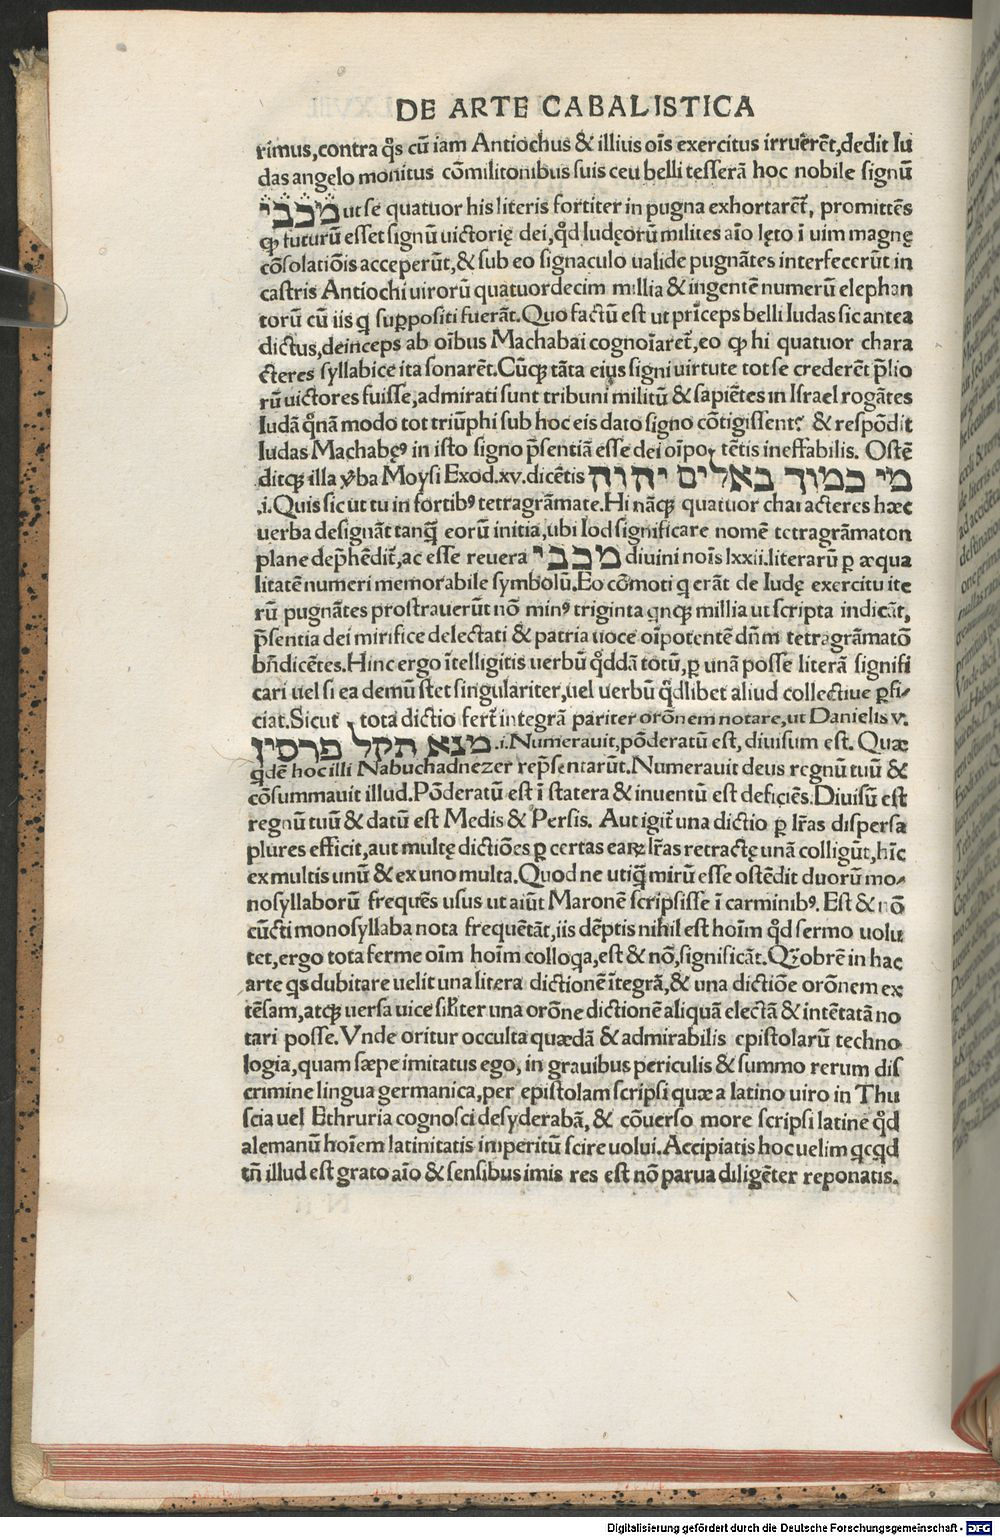 DE ARTE CABALISTICA
rimus,contra q̃s cũ iam Antiochus & illius oĩs exercitus irruẽrẽt,dedit Iu
das angelo monitus cõmilitonibus suis ceu belli tesserã hoc nobile signũ
מכבי ut se quatuor his literis fortiter in pugna exhortarẽt, promittẽs
ꝙ futurũ esset signũ uictorię dei,qđ Iudęorũ milites aĩo lęto ĩ uim magnę
cõsolatiõis acceperũt,& sub eo signaculo ualide pugnãtes interfecerũt in
castris Antiochi uirorũ quatuordecim millia & ingentẽ numerũ elephan
torũ cũ iis q suꝑpositi fuerãt.Quo factũ est ut prĩceps belli Iudas sic antea
dictus,deinceps ab oĩbus Machabai cognoĩaret̃,eo ꝙ hi quatuor chara
cteres syllabice ita sonarẽt.Cũq; tãta eius signi uirtute tot se crederẽt p̃lio
rũ uictores fuisse,admirati sunt tribuni militũ & sapiẽtes in Israel rogãtes
Iudã qđnã modo tot triũphi sub hoc eis dato signo cõtigissent? & respõdit
Iudas Machabęꝰ in isto signo p̃sentiã esse dei oĩpotẽtis ineffabilis. Ostẽ
ditq; illa ỽba Moysi Exod.xv.dicẽtis מי כמוך באלים יהוה
.i.Quis sicut tu in fortibꝰ tetragrãmate.Hi nãq; quatuor characteres hæc
uerba designãt tanq̃ eorũ initia,ubi Iod significare nomẽ tetragrãmaton
plane dep̃hẽdit̃,ac esse reuera מכבי diuini noĩs lxxii.literarũ ꝑ æqua
litatẽ numeri memorabile symbolũ.Eo cõmoti q erãt de Iudę exercitu ite
rũ pugnãtes prostrauerũt nõ minꝰ triginta qnq; millia ut scripta indicãt,
p̃sentia dei mirifice delectati & patria uoce oĩpotentẽ dñm tetragrãmatõ
bñdicẽtes.Hinc ergo ĩtelligitis uerbũ qđdã totũ,ꝑ unã posse literã signifi
cari uel si ea demũ stet singulariter,uel uerbũ qđlibet aliud collectiue ꝑfi-
ciat.Sicut tota dictio fert̃ integrã pariter orõnem notare,ut Danielis v.
מנא תקל פרסין .i.Numerauit,põderatũ est, diuisum est. Quæ
qđẽ hoc illi Nabuchadnezer rep̃sentarũt.Numerauit deus regnũ tuũ &
cõsummauit illud.Põderatũ est ĩ statera & inuentũ est deficiẽs.Diuisũ est
regnũ tuũ & datũ est Medis & Persis. Aut igit̃ una dictio ꝑ lr̃as dispersa
plures efficit,aut multę dictiões ꝑ certas earꝝ lr̃as retractę unã colligũt,hĩc
ex multis unũ & ex uno multa.Quod ne utiq̃ mirũ esse ostẽdit duorũ mo-
nosyllaborũ frequẽs usus ut aiũt Maronẽ scripsisse ĩ carminibꝰ. Est & nõ
cũcti monosyllaba nota frequẽtãt,iis dẽptis nihil est hoĩm qđ sermo uolu
tet,ergo tota ferme oĩm hoĩm colloqa,est & nõ,significãt.Q̃obrẽ in hac
arte q̃s dubitare uelit una litera dictionẽ ĩtegrã,& una dictiõe orõnem ex
tẽsam,atq; uersa uice sil̃iter una orõne dictionẽ aliquã electã & intẽtatã no
tari posse.Vnde oritur occulta quædã & admirabilis epistolarũ techno
logia,quam sæpe imitatus ego, in grauibus periculis & summo rerum dis
crimine lingua germanica,per epistolam scripsi quæ a latino uiro in Thu
scia uel Ethruria cognosci desyderabã, & cõuerso more scripsi latine qđ
alemanũ hoĩem latinitatis imperitũ scire uolui.Accipiatis hoc uelim qcqd
tñ illud est grato aĩo & sensibus imis res est nõ parua diligẽter reponatis.
Digitalisierung gefördert durch die Deutsche Forschungsgemeinschaft - DFG